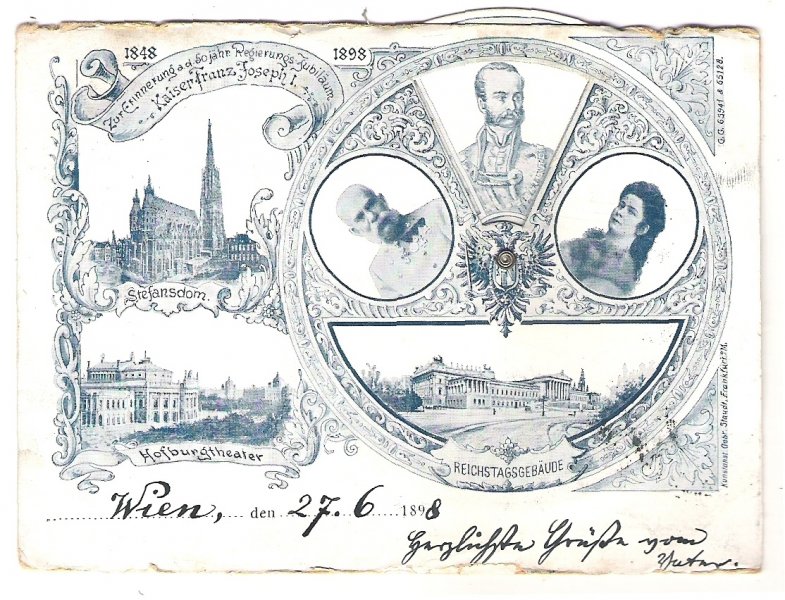 1848
1898
Zur Erinnerung a.d. 50 jähr. Regierungs-Jubiläum
Kaiser Franz Joseph I.
G.G. 65941 & 65128.
Stefansdom.
Hofburgtheater
REICHSTAGSGEBÄUDE
Kunstanst. Gebr. Staudt, Frankfurt a/M.
Wien, den 27.6 1898
Herzlichste Grüße vom
Vater.